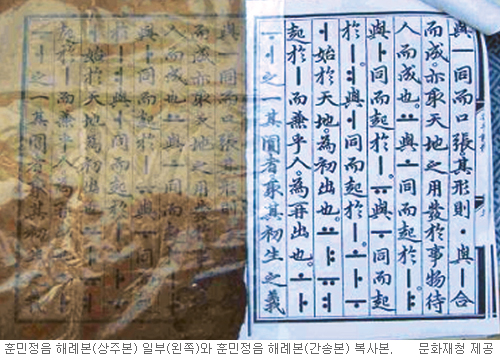 與ㅡ同而口張其形則ㆍ與ㅣ合
而成亦取天地之用發於事物待
人而成也ㅛ與ㅗ同而起於ㅣ
ㅑ與ㅏ同而起於ㅣㅠ與ㅜ同而起
於ㅣㅕ與ㅓ同而起於ㅣㅗㅏㅜ
ㅓ始於天地為初出也ㅛㅑㅠㅕ
起於ㅣ而兼乎人為再出也ㅗㅏ
ㅜㅓ之一其圓者取其初生之義
與ㅡ同而口張其形則。ㆍ與ㅣ合
而成。亦取天地之用發於事物待
人而成也。ㅛ與ㅗ同而起於ㅣ。
ㅑ與ㅏ同而起於ㅣ。ㅠ與ㅜ同而起
於ㅣ。ㅕ與ㅓ同而起於ㅣ。ㅗㅏㅜ
ㅓ始於天地。為初出也。ㅛㅑㅠㅕ
起於ㅣ而兼乎人。為再出也。ㅗㅏ
ㅜㅓ之一其圓者取其初生之義
훈민정음 해례본(상주본) 일부(왼쪽)와 훈민정음 해례본(간송본) 복사본. 문화재청 제공